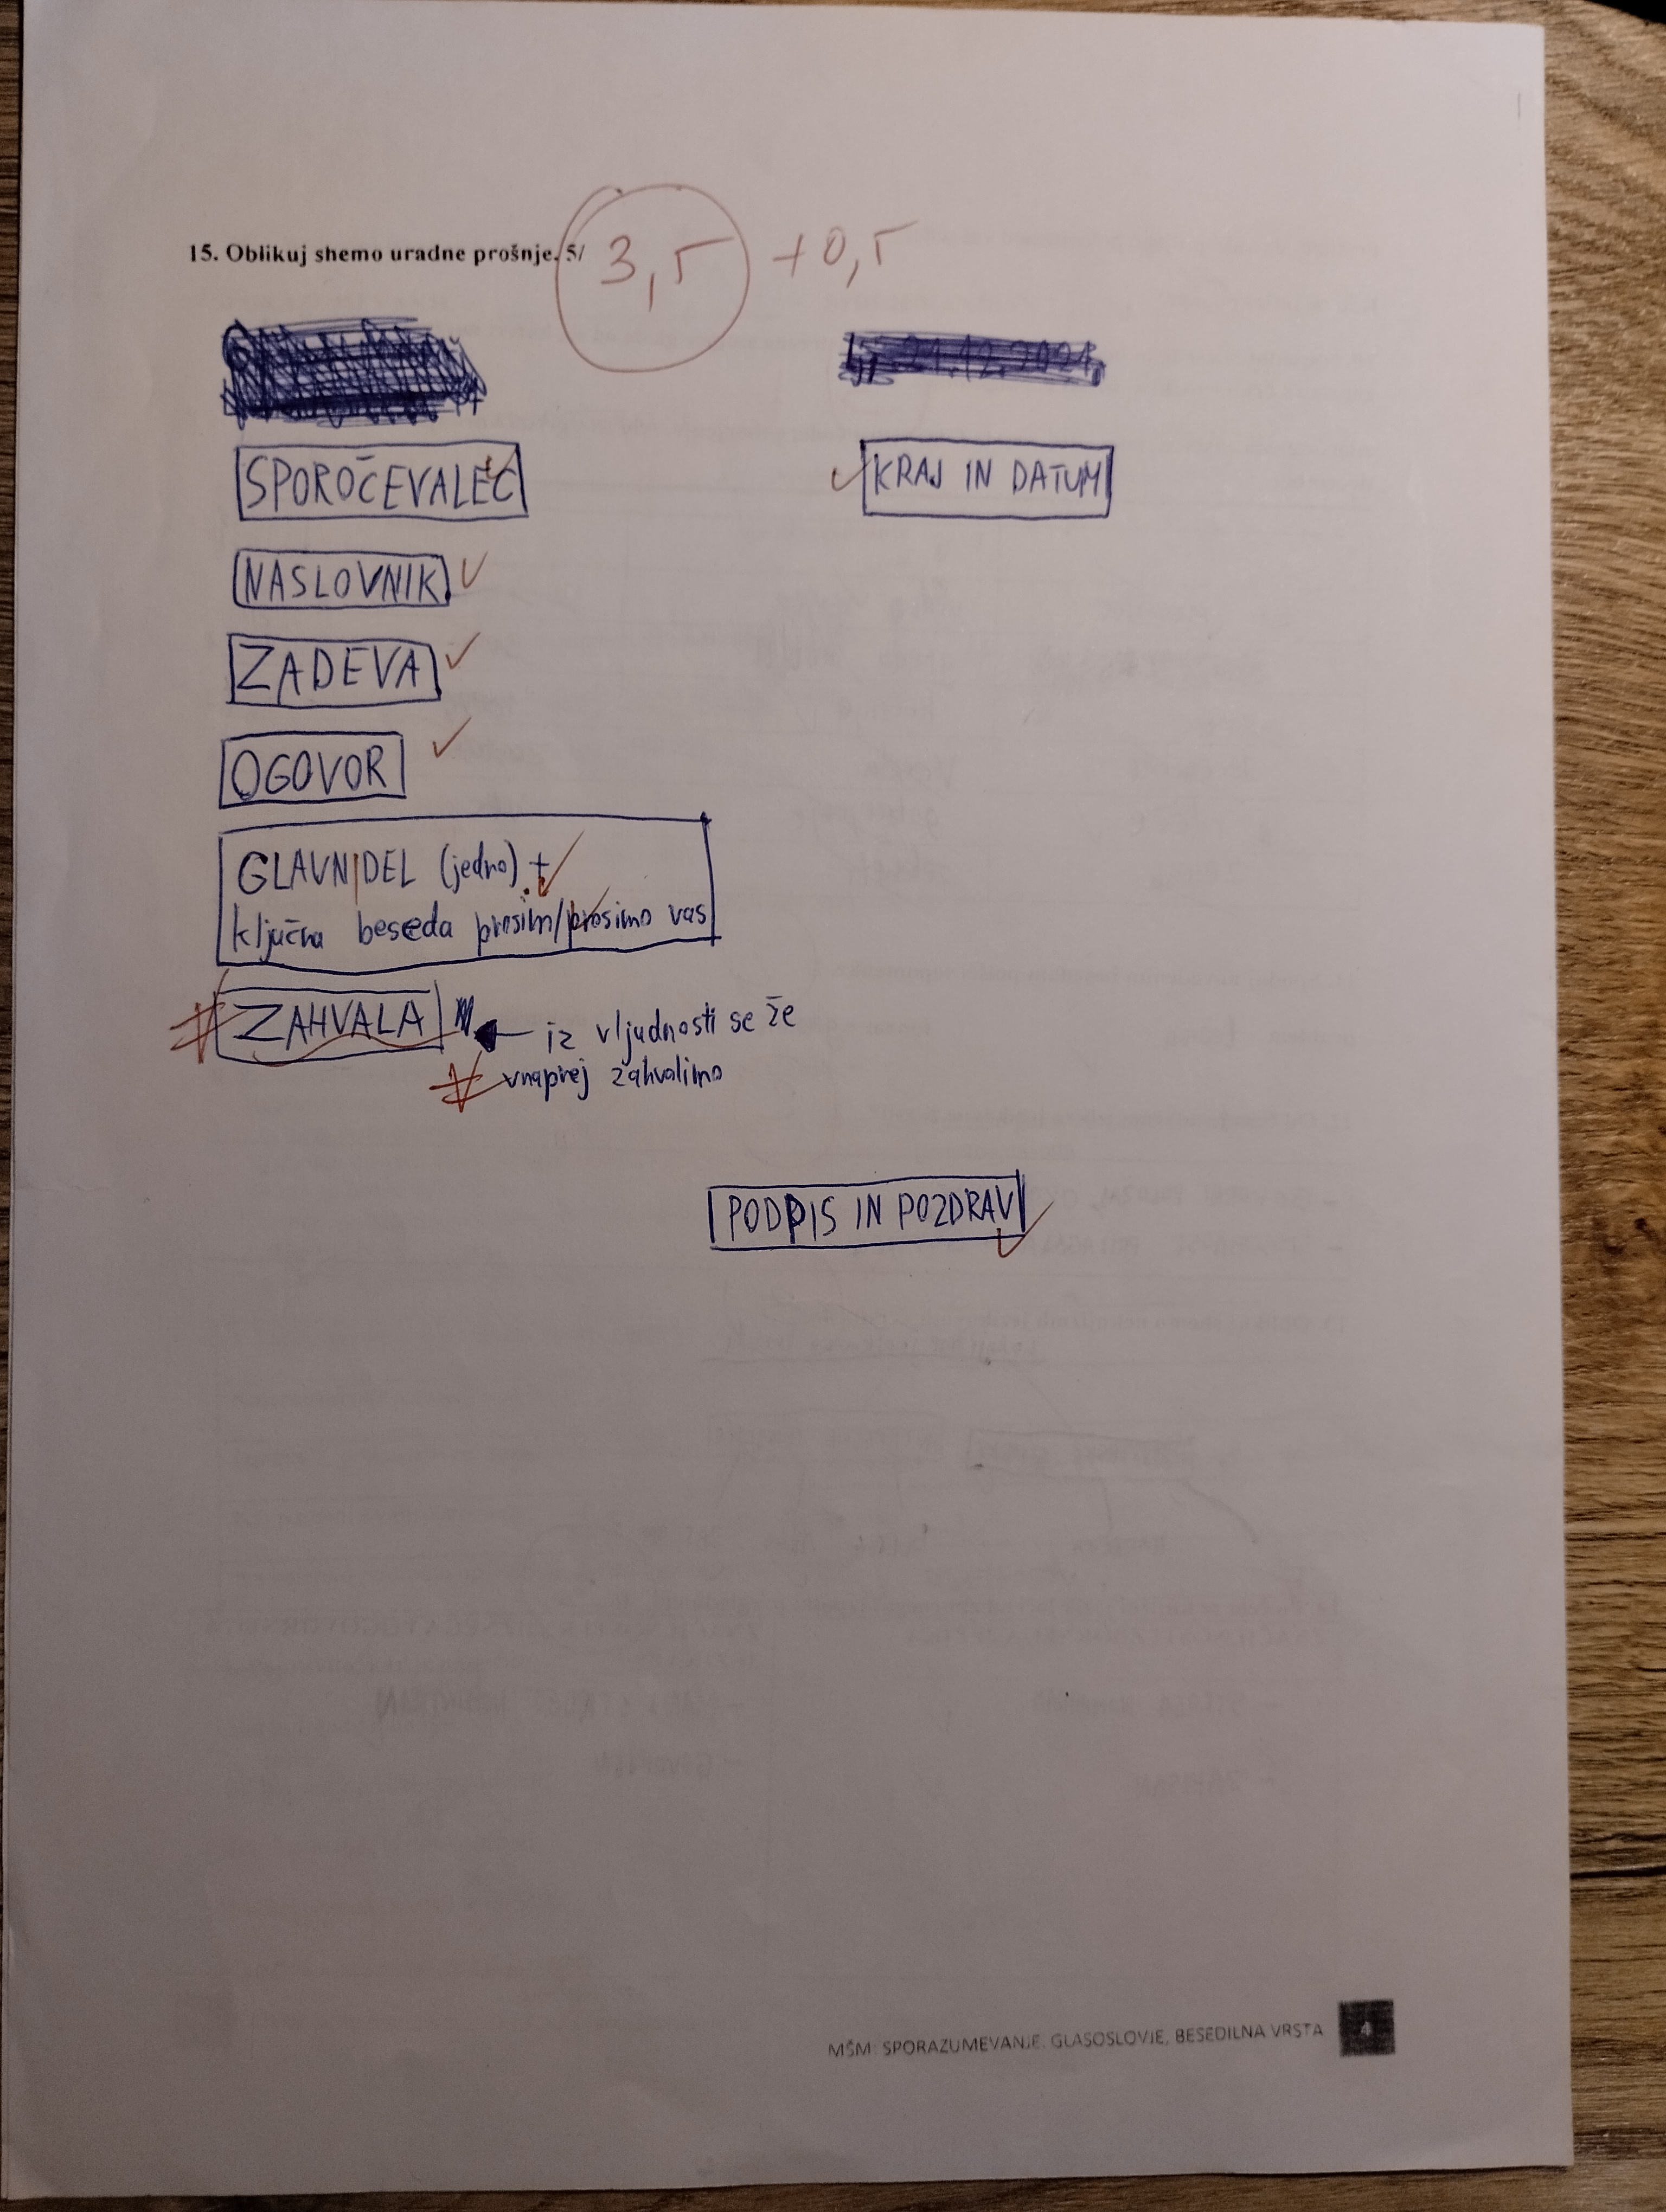 15. Oblikuj shemo uradne prošnje. 5/ 3,5 +0,5
21.12.2021,
SPOROČEVALEC
KRAJ IN DATUM
NASLOVNIK
ZADEVA
OGOVOR
GLAVNI DEL (jedno) +
ključna beseda prosim/prosimo vas
ZAHVALA
iz vljudnosti se že
vnaprej zahvalimo
PODPIS IN POZDRAV
MŠM: SPORAZUMEVANJE, GLASOSLOVJE, BESEDILNA VRSTA 4